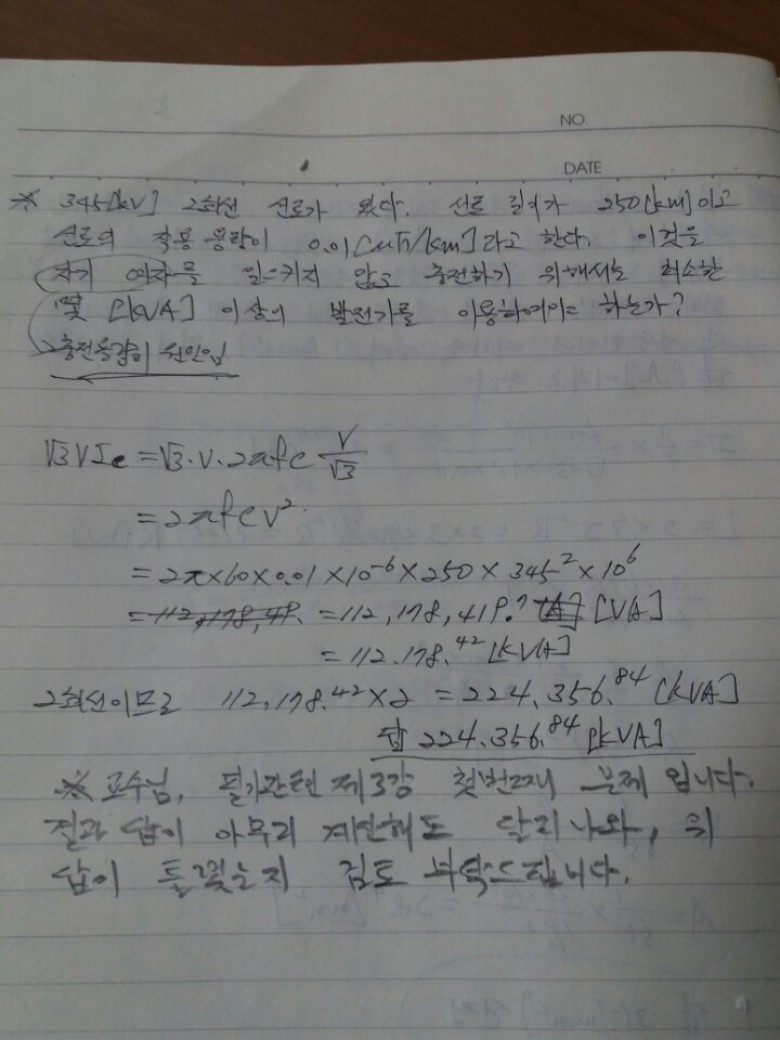 NO.
DATE
※ 345[kV] 2회선 선로가 있다. 선로 길이가 250[km]이고
선로의 작용 용량이 0.01[μF/km]라고 한다. 이것을
자기 여자를 일으키지 않고 충전하기 위해서는 최소한
몇 [kVA] 이상의 발전기를 이용하여야 하는가?
충전용량이 원인임
√3VIc = √3·V·2πfc V/√3
= 2πfcV²
= 2π×60×0.01×10⁻⁶×250×345²×10⁶
= 112,178,49. = 112,178,419.? [A] [VA]
= 112.178.⁴² [kVA]
2회선이므로 112,178.⁴²×2 = 224.356.⁸⁴ [kVA]
답 224.356.⁸⁴ [kVA]
※ 교수님, 필기관련 제3강 첫번째 문제 입니다.
결과 답이 아무리 계산해도 달리나와, 위
답이 틀렸는지 검토 부탁드립니다.